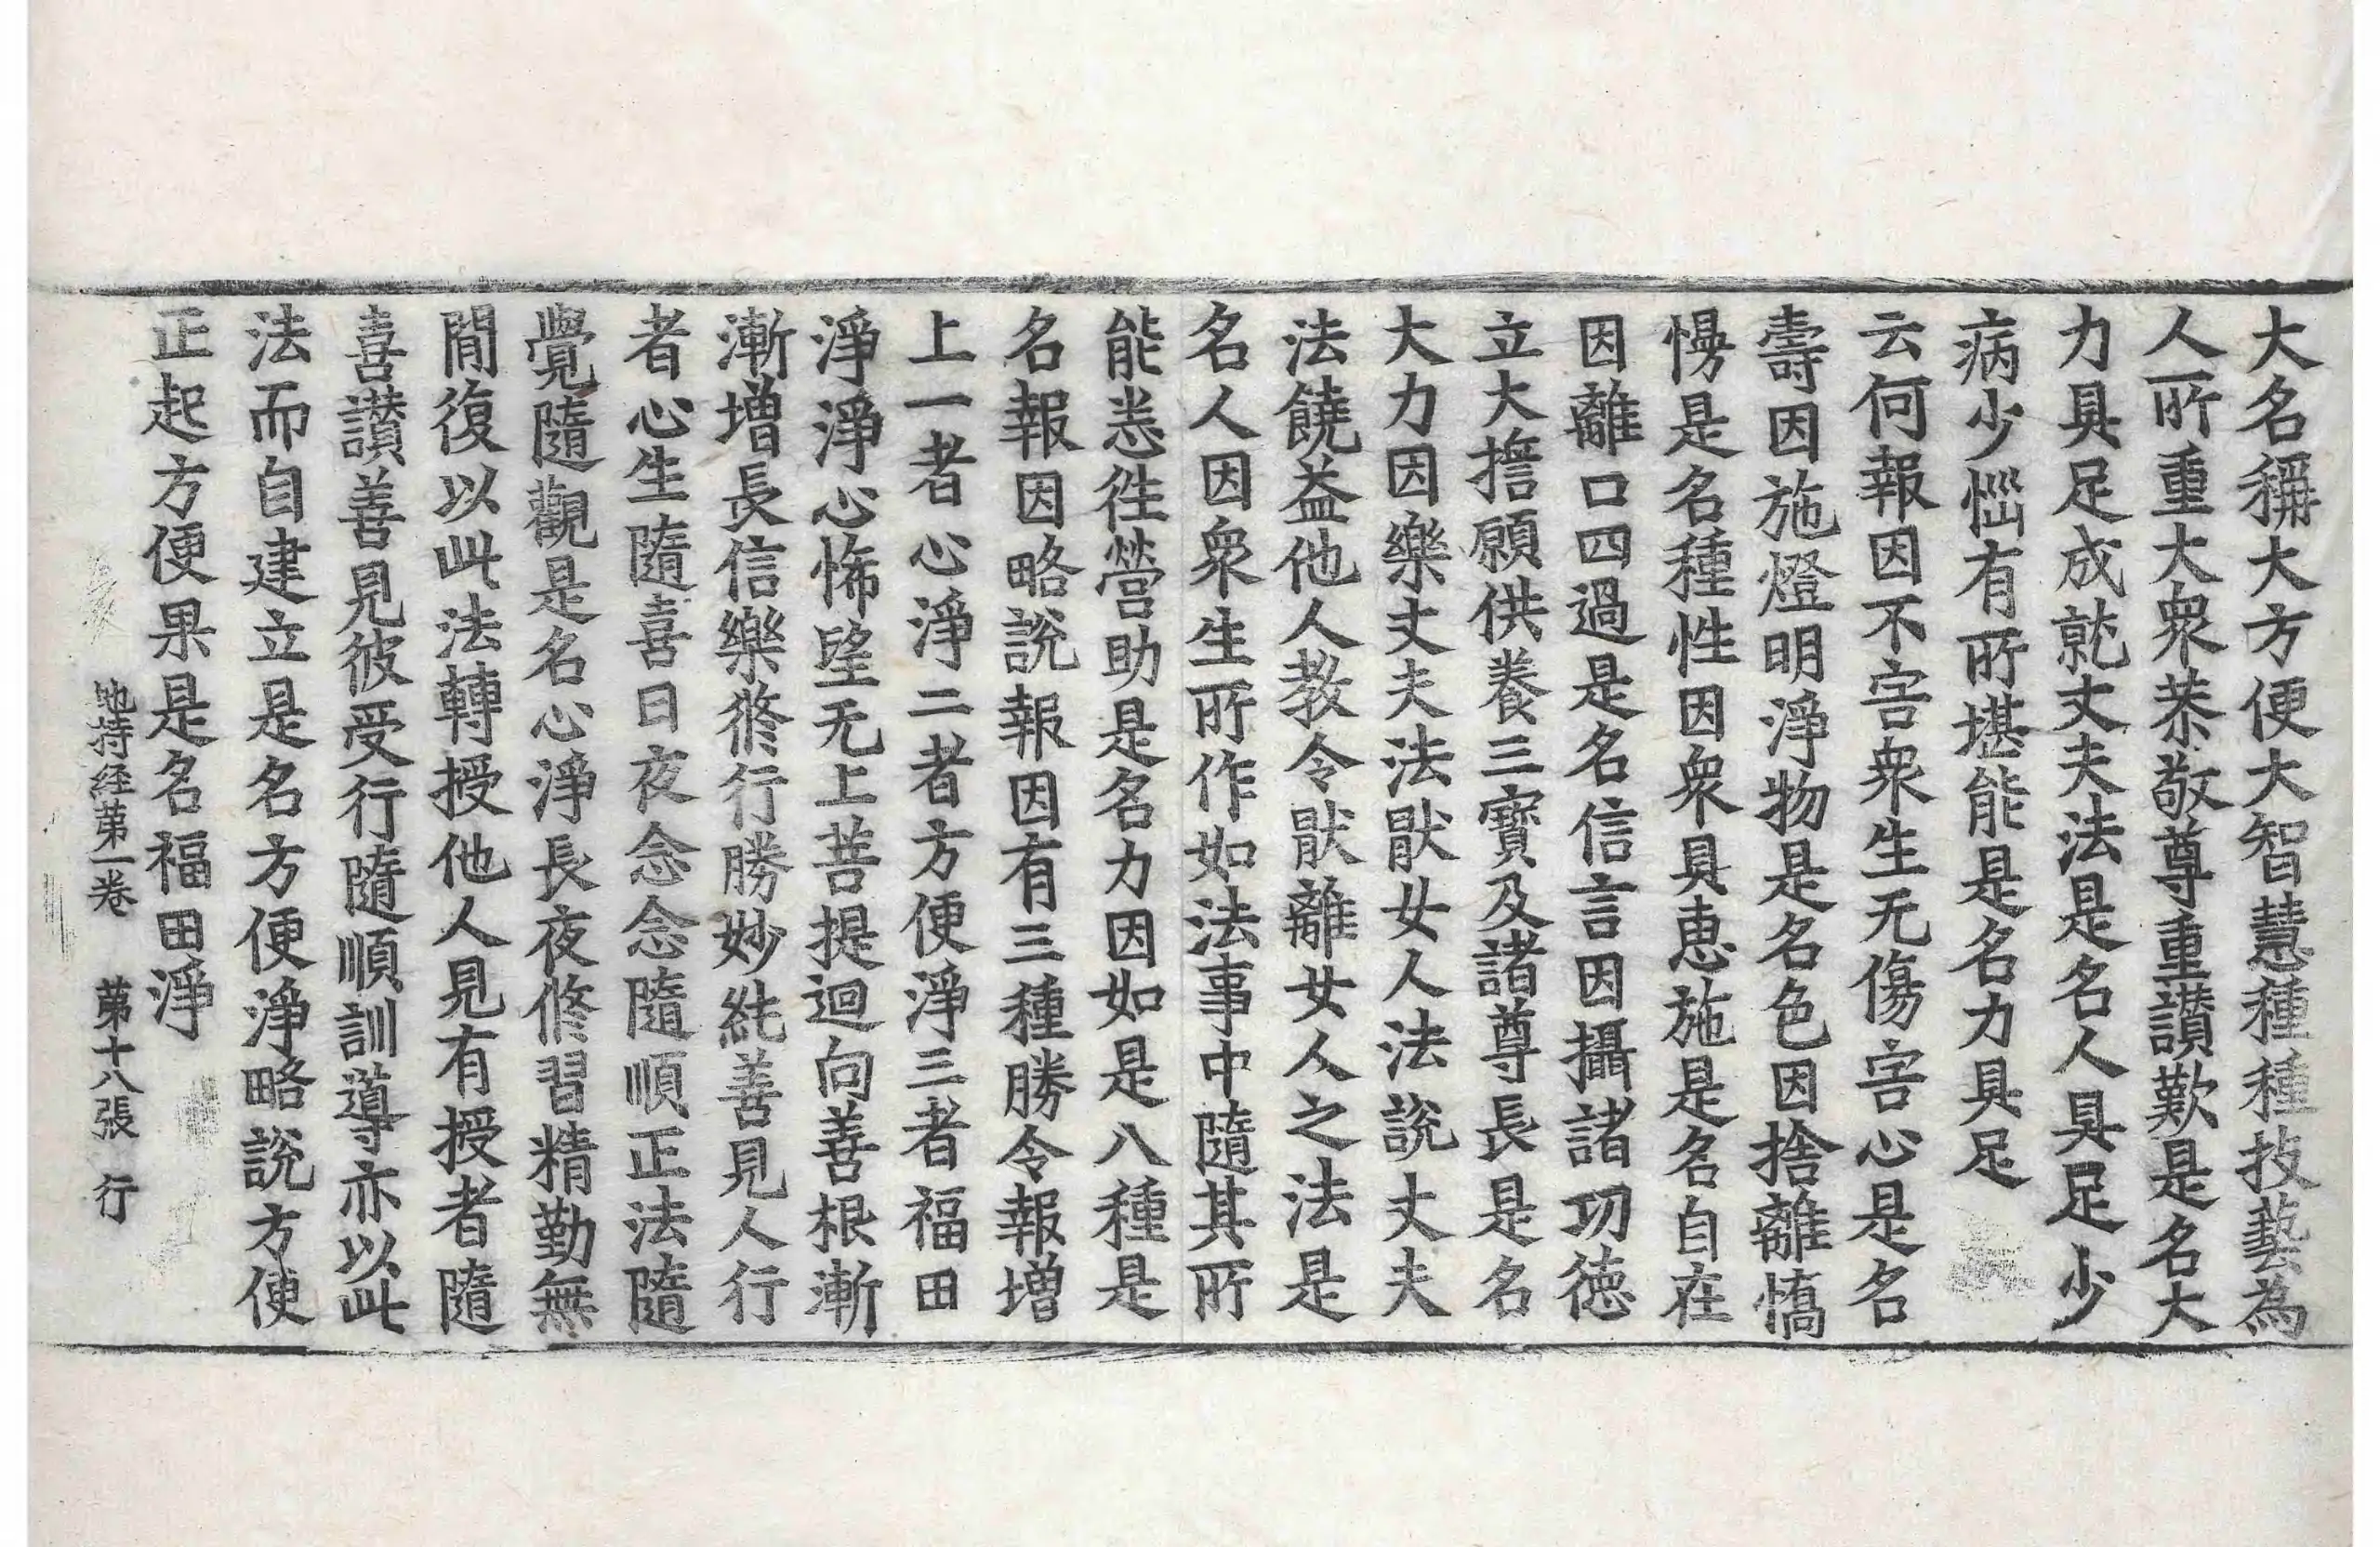 大名稱大方便大智慧種種技藝為
人所重大衆恭敬尊重讃歎是名大
力具足成就丈夫法是名人具足少
病少惱有所堪能是名力具足
云何報因不害衆生无傷害心是名
壽因施燈明淨物是名色因捨離憍
慢是名種性因衆具惠施是名自在
因離口四過是名信言因攝諸功德
立大擔願供養三寶及諸尊長是名
大力因樂丈夫法猒女人法說丈夫
法饒益他人教令猒離女人之法是
名人因衆生所作如法事中隨其所
能悉徃營助是名力因如是八種是
名報因略說報因有三種勝令報增
上一者心淨二者方便淨三者福田
淨淨心悕望无上菩提迴向善根漸
漸增長信樂修行勝妙純善見人行
者心生隨喜日夜念念隨順正法隨
覺隨觀是名心淨長夜修習精勤無
閒復以此法轉授他人見有授者隨
喜讃善見彼受行隨順訓導亦以此
法而自建立是名方便淨略說方便
正起方便果是名福田淨
地持経苐一卷 苐十八張 行